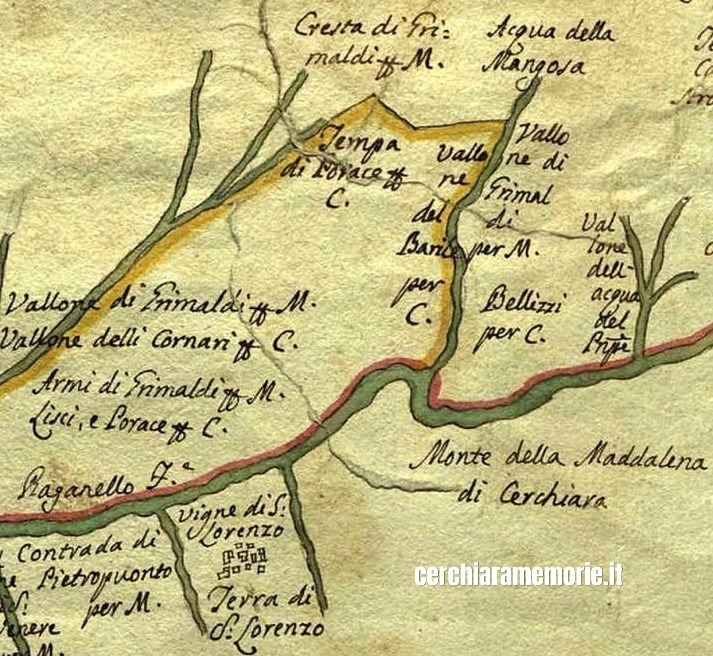 Cresta di Gri=
maldi ꝑ M.
Acqua della
Mangosa
Tempa
di Porace ꝑ
C.
Vallo
ne
del
Barile
per
C.
Vallo
ne di
Grimal
di
per M.
Bellizzi
per C.
Val
lone
dell'
acqua
del
Vallone di Grimaldi ꝑ M.
Vallone delli Cornari ꝑ C.
Armi di Grimaldi ꝑ M.
Lisci, e Porace ꝑ C.
Monte della Maddalena
di Cerchiara
Raganello F.e
Vigne di S.
Lorenzo
Contrada di
Pietropuonto
per M.
Terra di
S. Lorenzo
Venere
M.
cerchiaramemorie.it